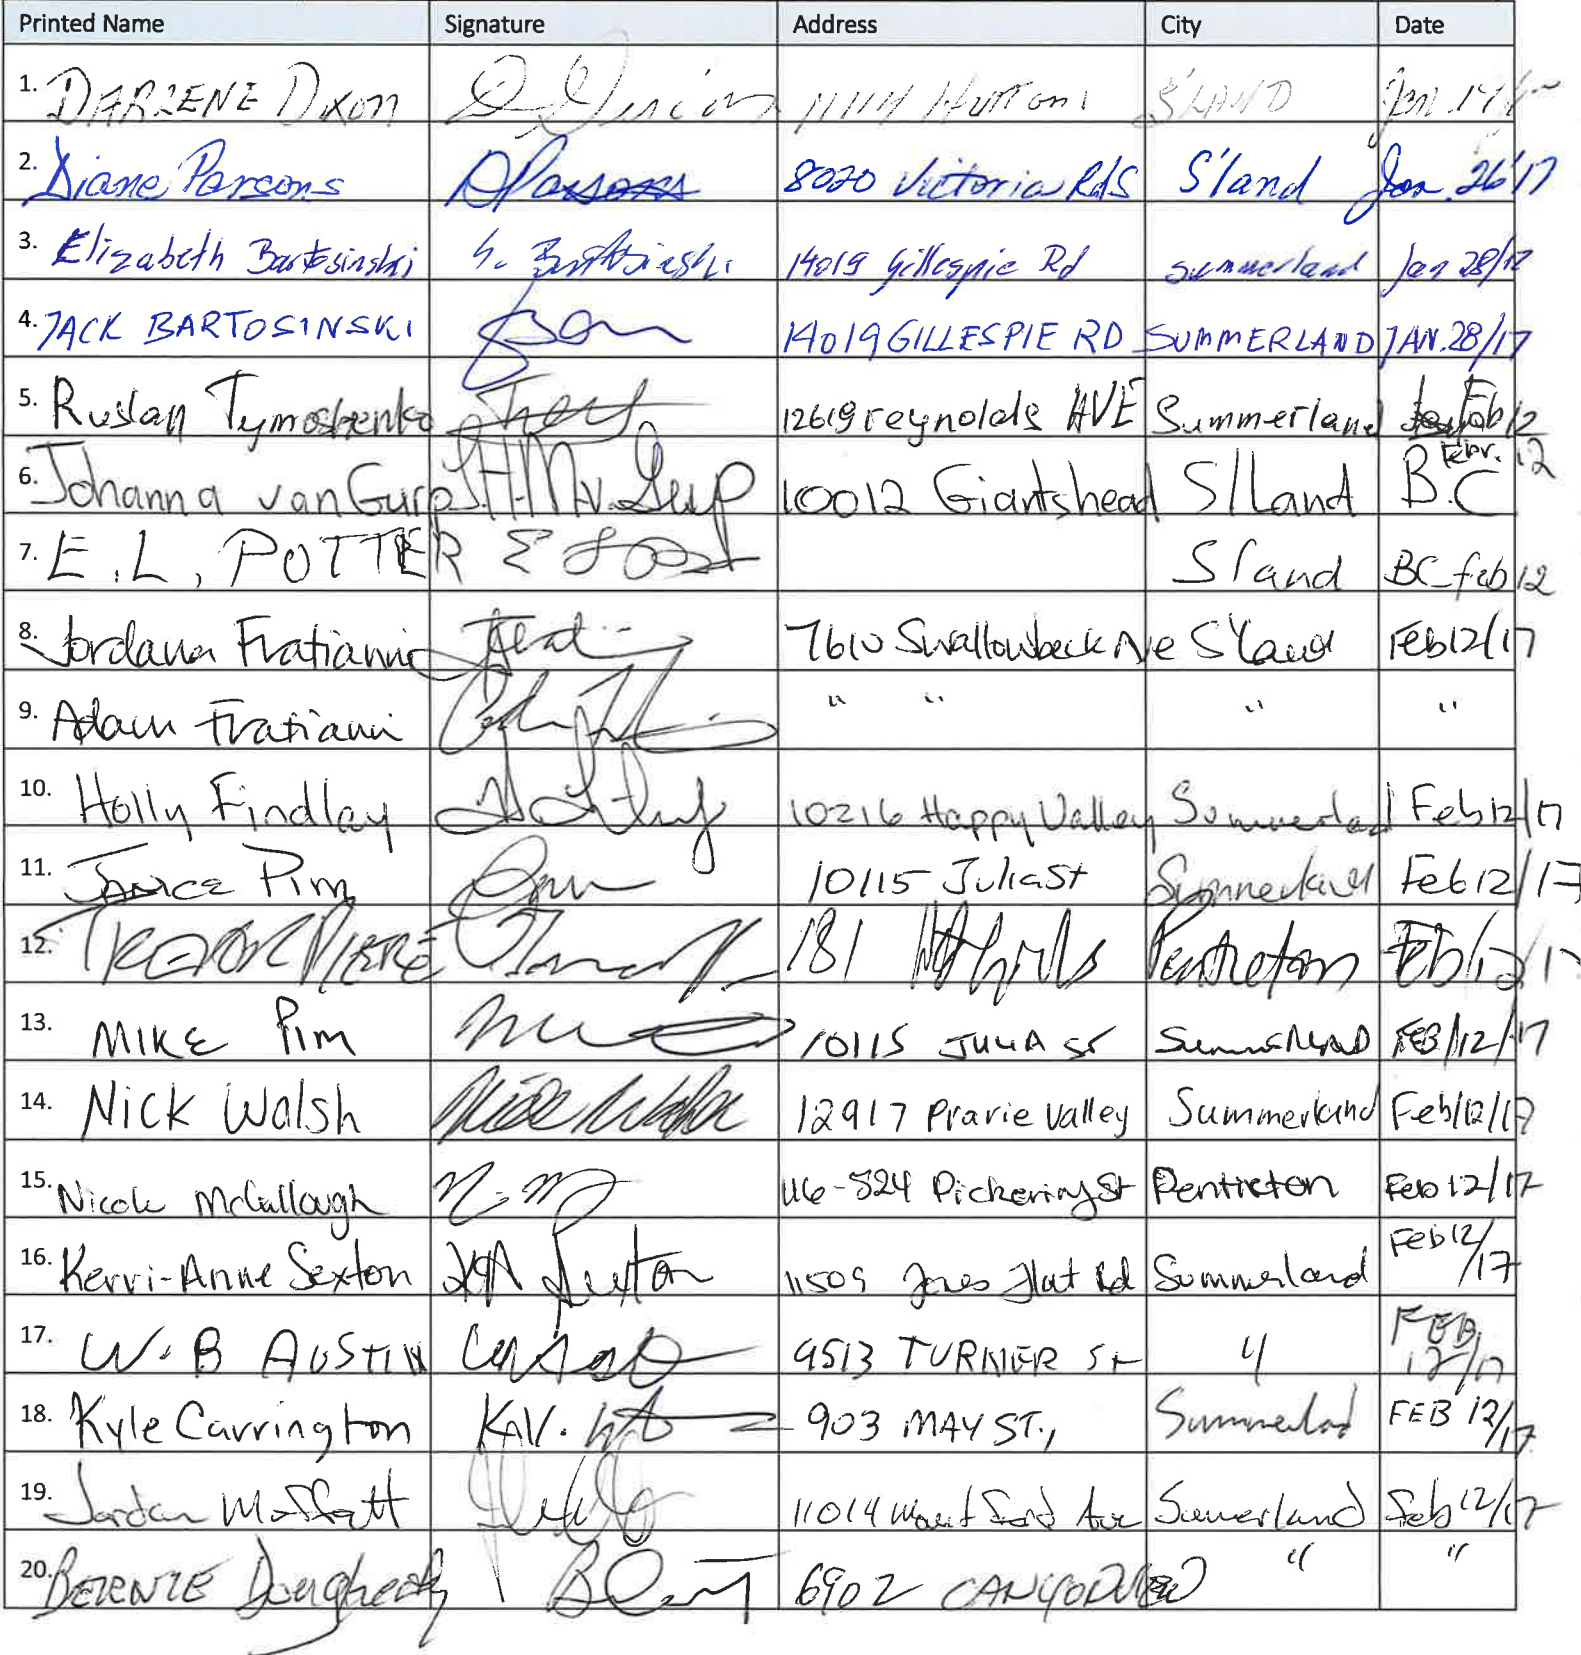 Printed Name Signature Address City Date
1. DARLENE Dixon S'LAND Jan
2. Diane Parsons DParsons 8020 Victoria Rd S S'land Jan. 26'17
3. Elizabeth Bartosinski Bartosinski 14019 Gillespie Rd Summerland Jan 28/17
4. JACK BARTOSINSKI 14019 GILLESPIE RD SUMMERLAND JAN. 28/17
5. Ruslan Tymoshenko 12619 reynolds AVE Summerland Feb 12
6. Johanna van Gurp 10012 Giantshead S/Land B.C Febr. 12
7. E.L, POTTER S'land BC feb 12
8. Jordana Fratianni 7610 Swallowbeck Ave S'land Feb 12/17
9. Adam Fratianni " " " "
10. Holly Findlay 10216 Happy Valley Summerland Feb 12/17
11. Janice Pim 10115 Julia St Summerland Feb 12/17
12. TREVOR 181 Penticton Feb/12/17
13. MIKE Pim 10115 JULIA ST Summerland FEB/12/17
14. Nick Walsh Nick Walsh 12917 Prarie Valley Summerland Feb/12/17
15. Nicole McCullough 116-524 Pickering St Penticton Feb 12/17
16. Kerri-Anne Sexton KA Sexton 11509 Jones Flat Rd Summerland Feb 12/17
17. W.B AUSTIN 9513 TURNER St " FEB, 12/17
18. Kyle Carrington 903 MAY ST., Summerland FEB 12/17
19. Jordan Moffatt 11014 Ave Summerland Feb 12/17
20. Dougherty 6902 " "